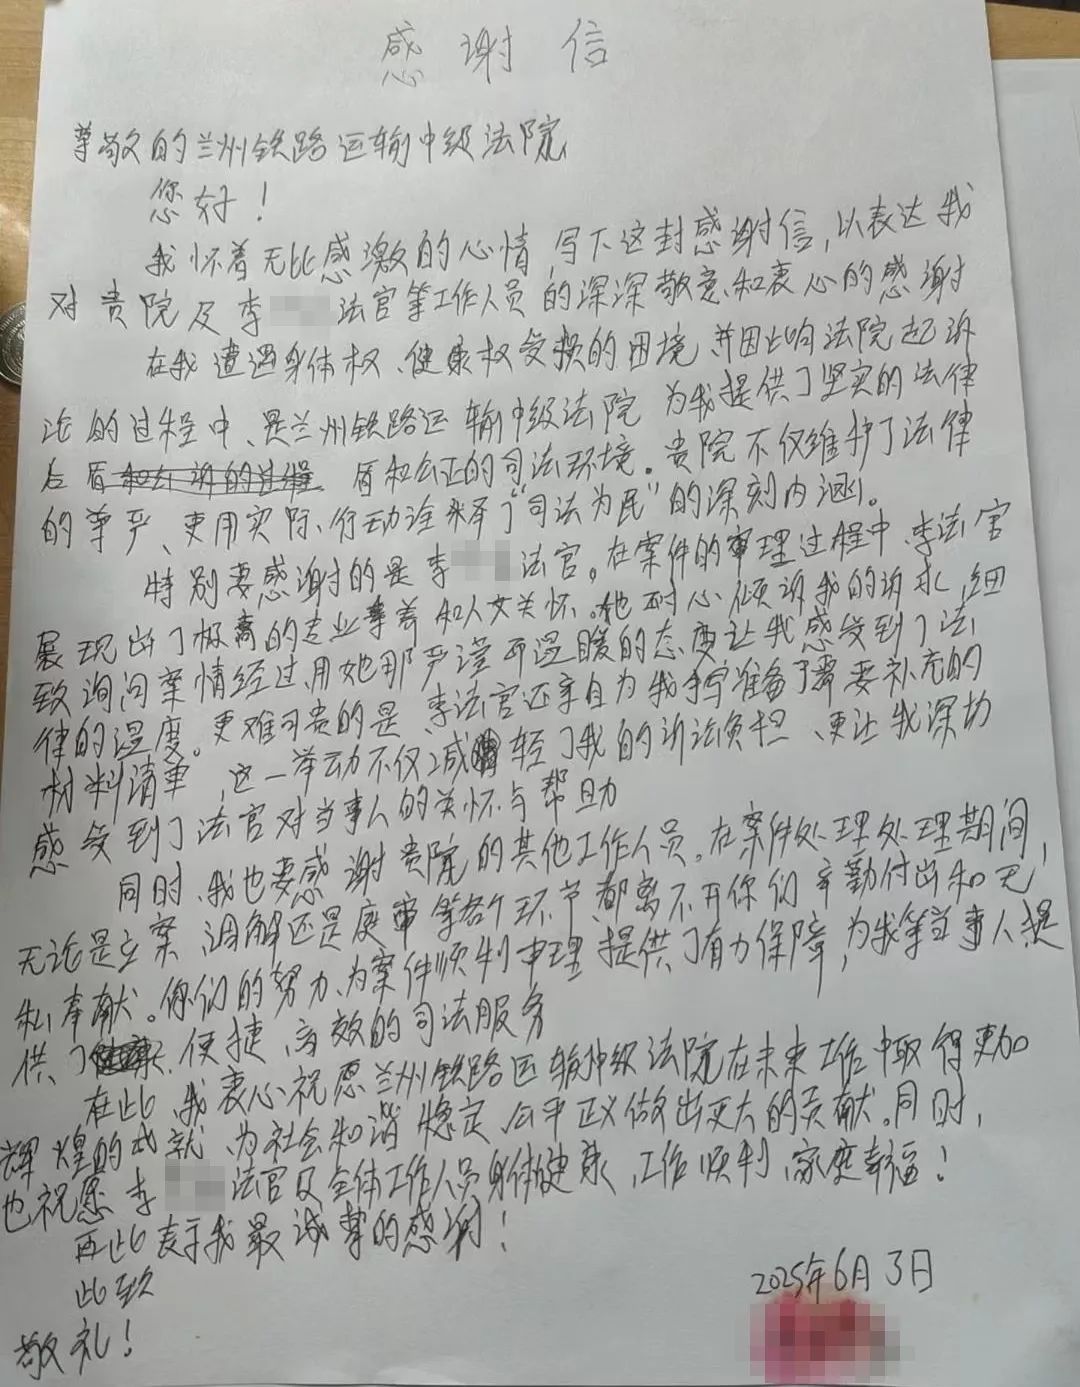 感谢信
尊敬的兰州铁路运输中级法院
您好！
我怀着无比感激的心情,写下这封感谢信,以表达我
对贵院及李 法官等工作人员的深深敬意和衷心的感谢
在我遭遇身体权、健康权受损的困境,并因此向法院起诉
讼的过程中、是兰州铁路运输中级法院 为我提供了坚实的法律
后盾 盾和公正的司法环境。贵院不仅维护了法律
的尊严、更用实际、行动诠释了“司法为民”的深刻内涵。
特别要感谢的是李 法官。在案件的审理过程中、李法官
展现出了极高的专业素养和人文关怀。她耐心倾诉我的诉求,细
致询问案情经过,用她那严谨而温暖的态度让我感受到了法
律的温度。更难可贵的是、李法官还亲自为我手写准备了需要补充的
材料清单,这一举动不仅减轻了我的诉讼负担、更让我深切
感受到了法官对当事人的关怀与帮助
同时、我也要感谢贵院的其他工作人员。在案件处理处理期间,
无论是立案、调解还是庭审等各个环节、都离不开你们辛勤付出和无
私奉献。你们的努力、为案件顺利审理提供了有力保障,为我等当事人提
供了 便捷、高效的司法服务
在此、我衷心祝愿兰州铁路运输中级法院在未来工作中取得更加
辉煌的成就、为社会和谐稳定、公平正义做出更大的贡献。同时,
也祝愿李 法官及全体工作人员身体健康,工作顺利、家庭幸福！
再此表示我最诚挚的感谢！
此致
敬礼！
2025年6月3日